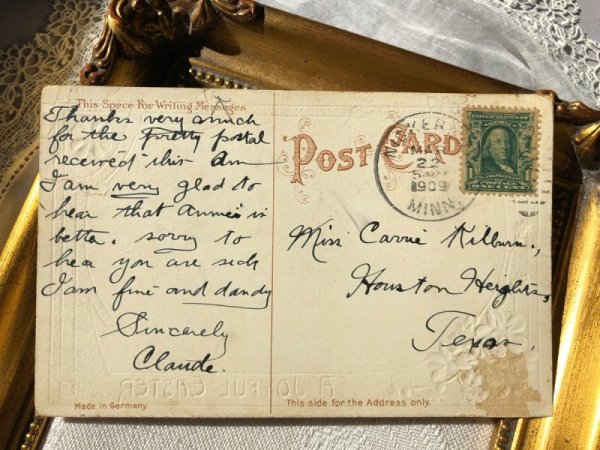 This Space For Writing Messages
Thanks very much
for the pretty postal
received this am
I am very glad to
hear that Annie is
better. sorry to
hear you are sick
I am fine and dandy
Sincerely
Claude.
POST CARD
MAR
22
1909
MINN.
Miss Carrie Kilburn.,
Houston Heights,
Texas.
A JOYFUL EASTER
Made in Germany.
This side for the Address only.